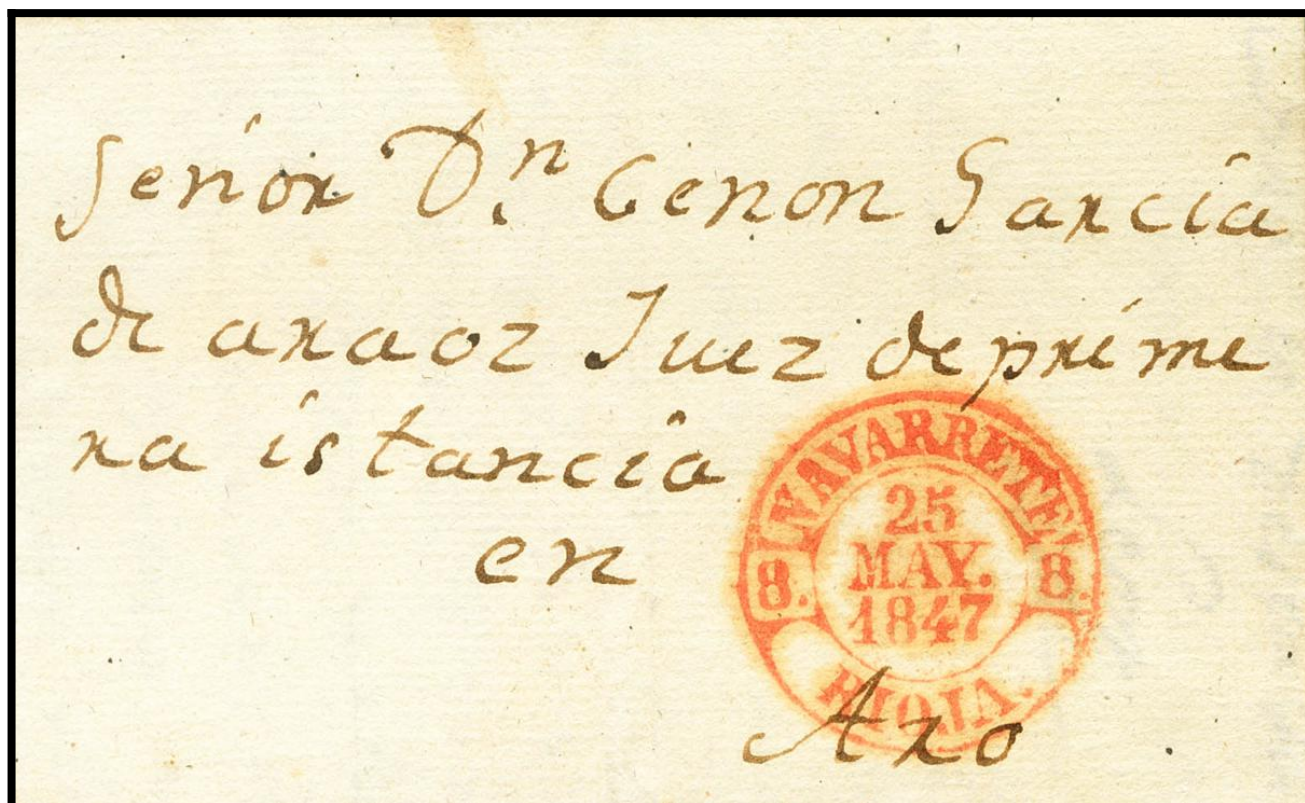 Señor D.n Cenon Garcia
de araoz Juez de prime
ra istancia
en
Aro
NAVARRETE
8. 25 8.
MAY.
1847
RIOJA.